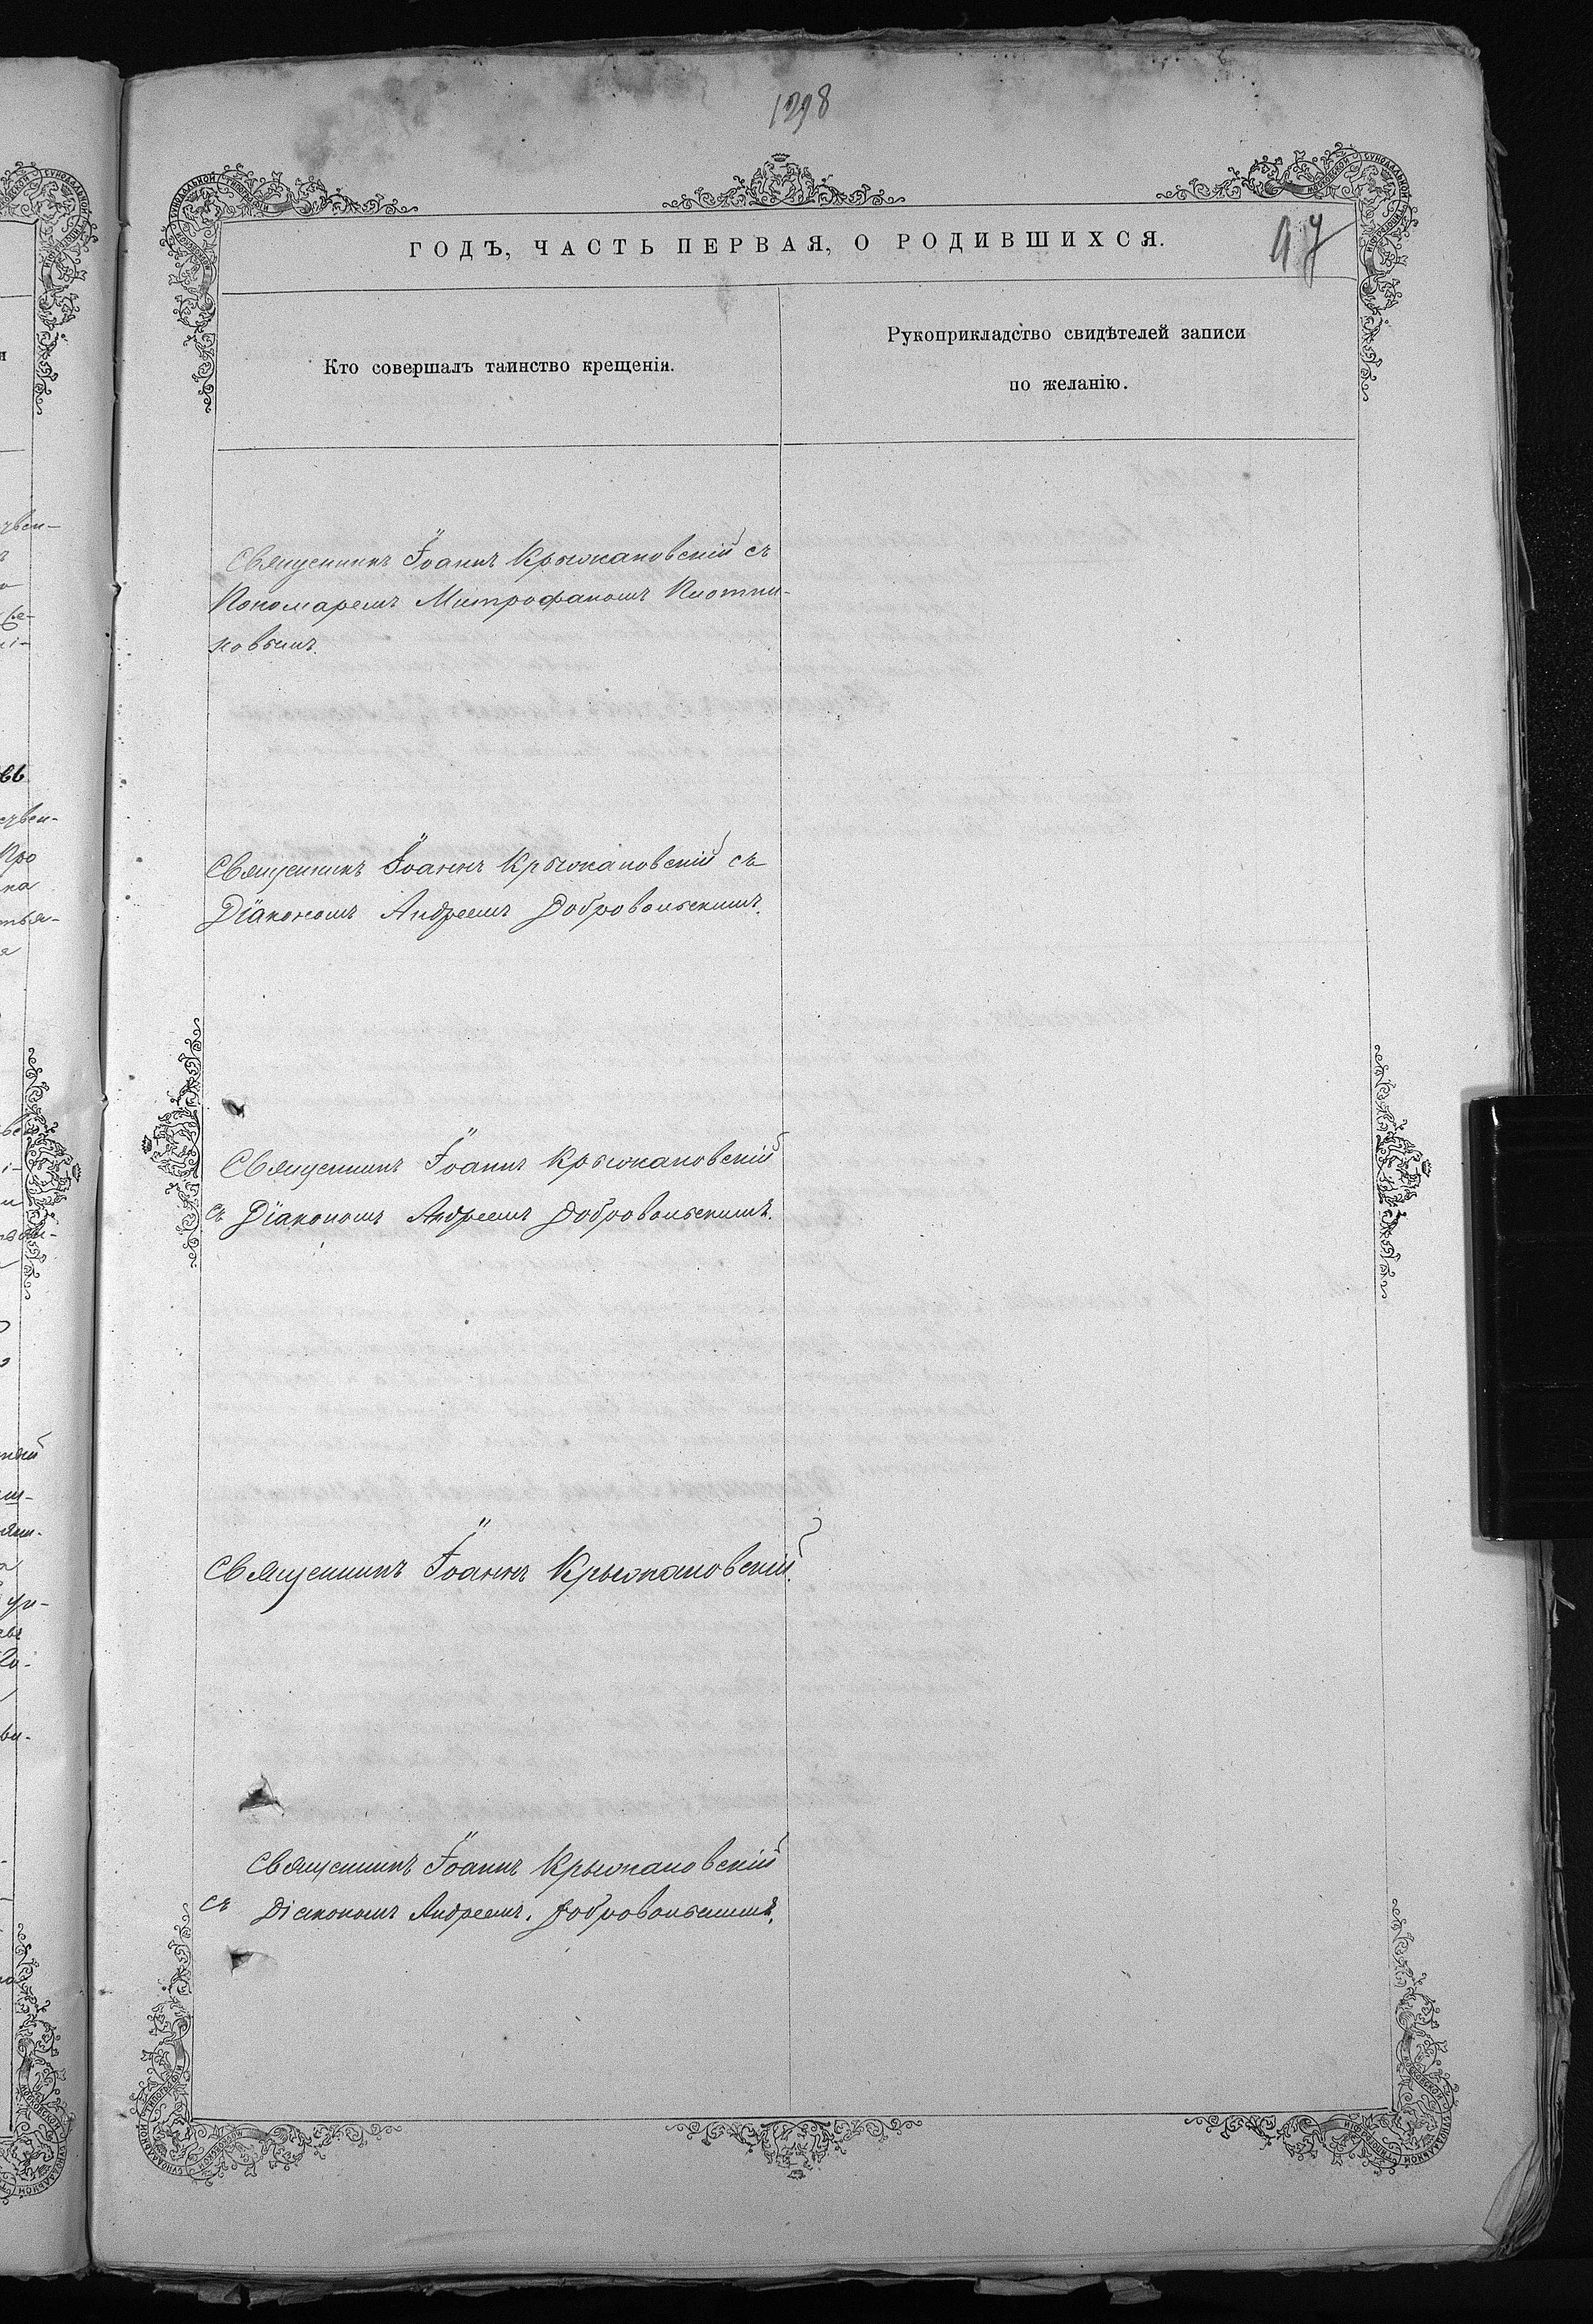 1298
97
ГОДЪ, ЧАСТЬ ПЕРВАЯ, О РОДИВШИХСЯ.
Кто совершалъ таинство крещенія.
Рукоприкладство свидѣтелей записи
по желанію.
Священникъ Іоаннъ Крыжановскій съ
Пономаремъ Митрофаномъ Плотни-
ковымъ.
Священникъ Іоаннъ Крыжановскій съ
Діакономъ Андреемъ Добровольскимъ.
Священникъ Іоаннъ Крыжановскій
съ Діакономъ Андреемъ Добровольскимъ.
Священникъ Іоаннъ Крыжановскій.
Священникъ Іоаннъ Крыжановскій
съ Діакономъ Андреемъ. Добровольскимъ.